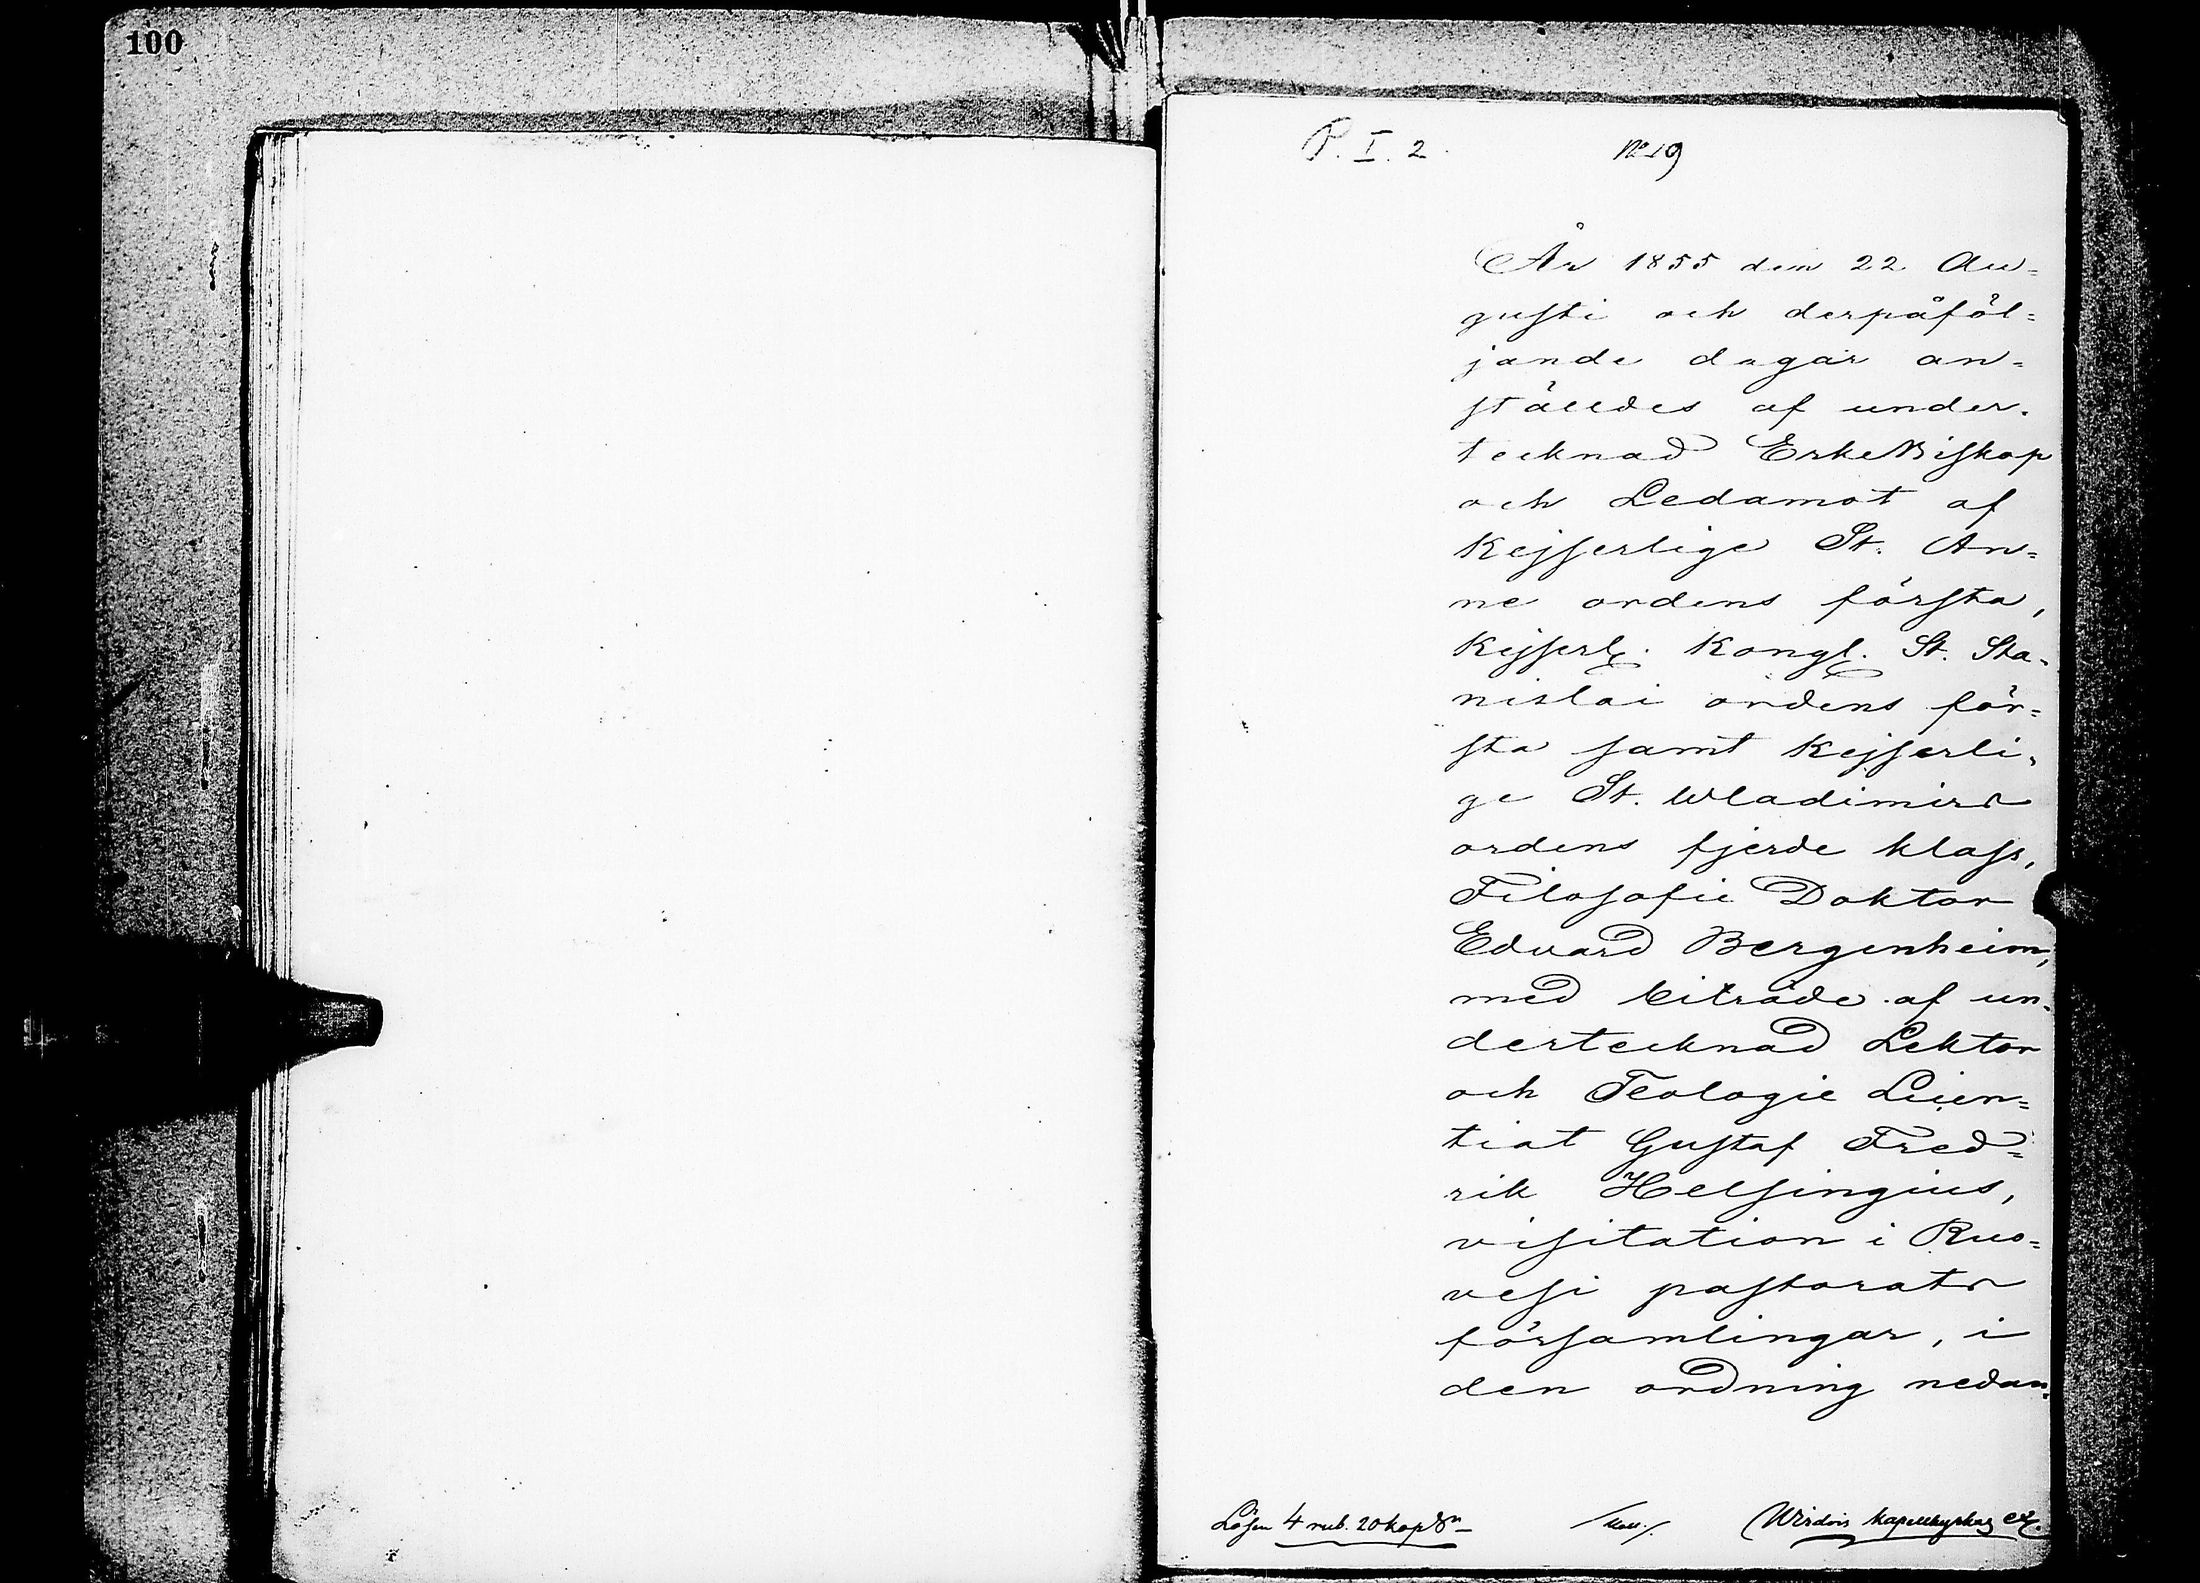 100
P. I. 2.
No 19
År 1855 den 22 Au=
gusti och derpåföl=
jande dagar an=
ställdes af under=
tecknad ErkeBiskop
och Ledamot af
Kejserlige St. An=
ne ordens första,
Kejserl. Kongl. St. Sta=
nislai ordens för=
sta samt Kejserli=
ge St. Wladimirs
ordens fjerde klass,
Filosofie Doktor
Edvard Bergenheim,
med biträde af un=
dertecknad Lektor
och Teologie Licen=
tiat Gustaf Fred=
rik Helsingius,
visitation i Ruo=
vesi pastorats
församlingar, i
den ordning nedan=
Lösen 4 rub. 20 kop
Wirdois Kapellkyrkas ex.